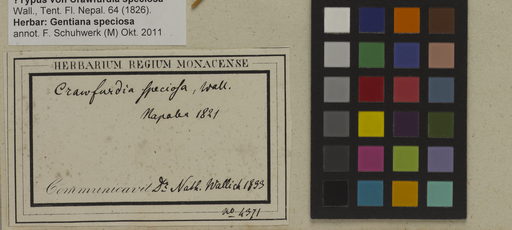 ? Typus von Crawfurdia speciosa
Wall., Tent. Fl. Nepal. 64 (1826).
Herbar: Gentiana speciosa
annot. F. Schuhwerk (M) Okt. 2011
HERBARIUM REGIUM MONACENSE
Crawfurdia speciosa, Wall.
Napalia 1821
Communicavit Dr. Nath. Wallich 1833
no. 4371